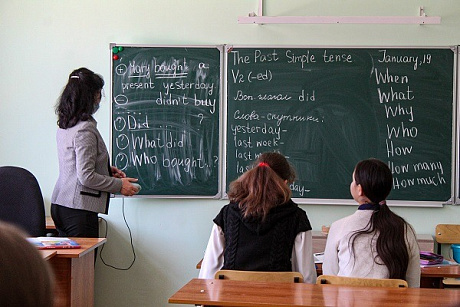 ⊕ Mary bought a
present yesterday
⊖ didn't buy
? Did ... ?
? What did
? Who bought. ?
The Past Simple tense
V2 (-ed)
Вон. глагол did
Слова-спутники:
yesterday-
last week-
last
day-
January, 19
When
What
Why
Who
How
How many
How much